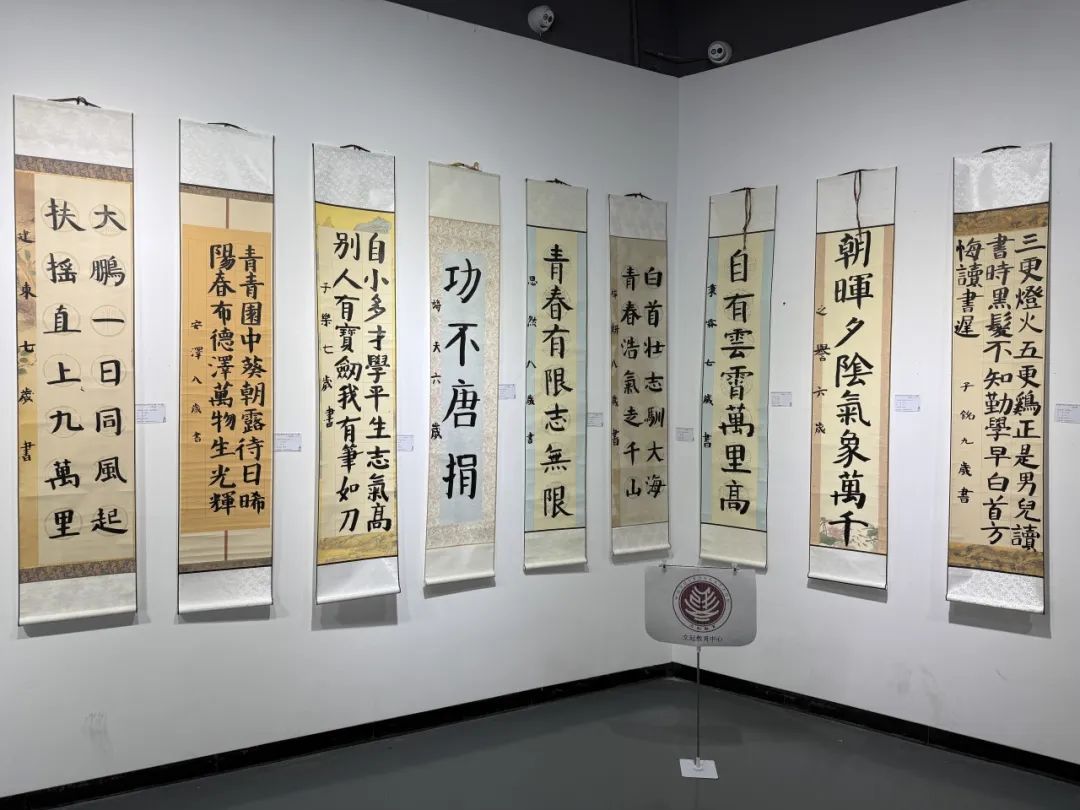 大鵬一日同風起
扶摇直上九萬里
建東七歲書
青青園中葵朝露待日晞
陽春布德澤萬物生光輝
安澤八歲書
自小多才學平生志氣高
别人有寶劒我有筆如刀
子樂七歲書
功不唐捐
六歲
青春有限志無限
思然八歲書
白首壮志馴大海
青春浩氣走千山
耕八歲書
自有雲霄萬里高
七歲書
朝暉夕陰氣象萬千
之譽六歲
三更燈火五更鷄正是男兒讀
書時黑髮不知勤學早白首方
悔讀書遲
子銳九歲書
教育中心